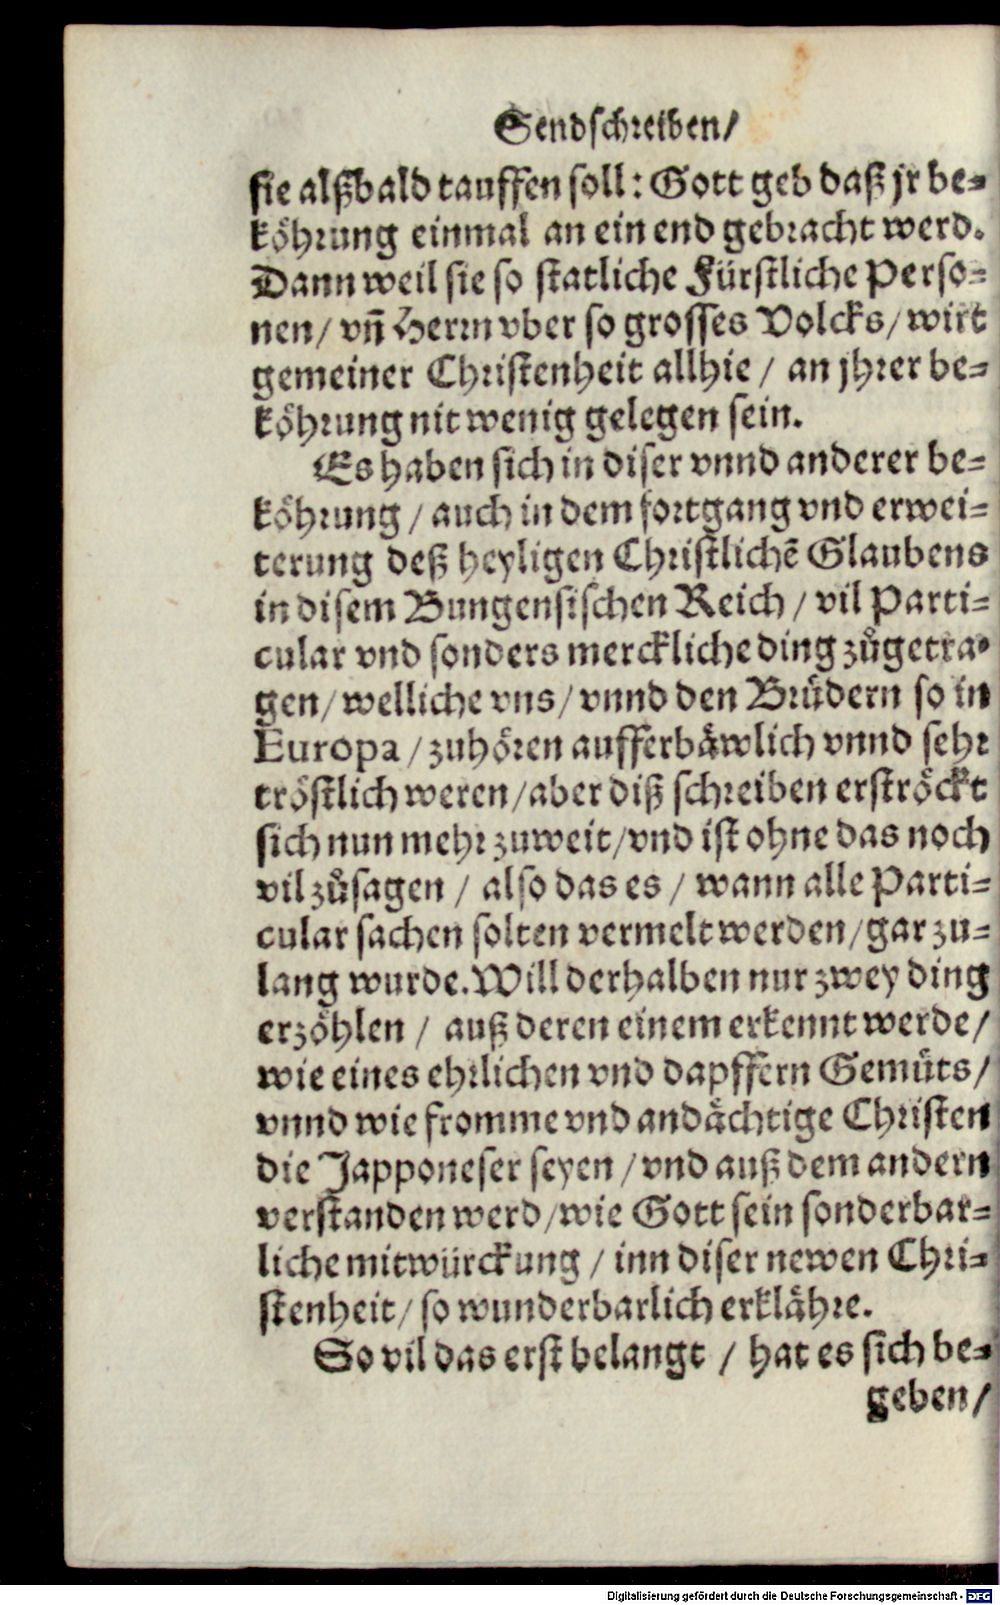 Sendschreiben/
sie alßbald tauffen soll: Gott geb daß jr be=
köhrung einmal an ein end gebracht werd.
Dann weil sie so statliche Fürstliche Perso=
nen/ vñ Herrn vber so grosses Volcks/ wirt
gemeiner Christenheit allhie / an jhrer be=
köhrung nit wenig gelegen sein.
Es haben sich in diser vnnd anderer be=
köhrung / auch in dem fortgang vnd erwei=
terung deß heyligen Christlichẽ Glaubens
in disem Bungensischen Reich / vil Parti=
cular vnd sonders merckliche ding zůgetra=
gen/ welliche vns/ vnnd den Brüdern so in
Europa / zuhören aufferbäwlich vnnd sehr
tröstlich weren/aber diß schreiben erströckt
sich nun mehr zuweit/vnd ist ohne das noch
vil zůsagen / also das es / wann alle Parti=
cular sachen solten vermelt werden/gar zu=
lang wurde. Will derhalben nur zwey ding
erzöhlen / auß deren einem erkennt werde/
wie eines ehrlichen vnd dapffern Gemüts/
vnnd wie fromme vnd andächtige Christen
die Japponeser seyen /vnd auß dem andern
verstanden werd/wie Gott sein sonderbar=
liche mitwürckung / inn diser newen Chri=
stenheit/ so wunderbarlich erklähre.
So vil das erst belangt / hat es sich be=
geben/
Digitalisierung gefördert durch die Deutsche Forschungsgemeinschaft - DFG